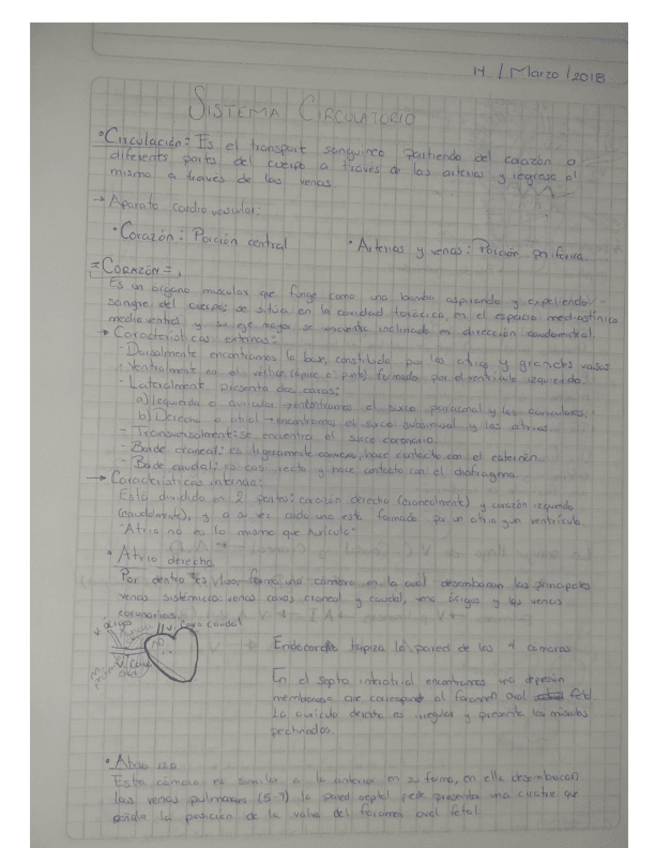 14 / Marzo / 2018
SISTEMA CIRCULATORIO
• Circulación: Es el transport sanguineo partiendo del corazón a
diferents partes del cuerpo a través de las arterias y regresa al
mismo a través de las venas.
→ Aparato cardiovascular:
• Corazón: Porción central
• Arterias y venas: Porción periferica.
= CORAZÓN =
Es un órgano muscular que funge como una bomba aspirando y expeliendo
sangre del cuerpo; se sitúa en la cavidad torácica, en el espacio mediastinico
medio ventral y su eje mayor se encuentra inclinado en dirección caudoventral.
→ Caracteristicas externas:
- Dorsalmente encontramos la base, constituida por los atrios y grandes vasos
- Ventralmente en el vértice (ápice o punta) formado por el ventrículo izquierdo.
- Lateralmente presenta dos caras:
a) Izquierda o auricular → encontramos el surco paraconal y las auriculares.
b) Derecha o atrial → encontramos el surco subsinuosal y los atrios.
- Transversalmente: se encuentra el surco coronario.
- Borde craneal: es ligeramente convexo, hace contacto con el esternón.
- Borde caudal: es casi recto y hace contacto con el diafragma.
→ Caracteristicas internas:
Está dividido en 2 partes: corazón derecho (cranealmente) y corazón izquierdo
(caudalmente), y a su vez cada uno esta formado por un atrio y un ventrículo.
"Atrio no es lo mismo que Aurícula"
• Atrio derecho.
Por dentro es liso, forma una cámara en la cual desembocan las principales
venas sistémicas: venas cavas craneal y caudal, vena ácigos y las venas
coronarias.
V. ácigos
V. Cava caudal
V. Cava
Endocardio tapiza la pared de las 4 cámaras
En el septo intratrial encontramos una depresión
membranosa que corresponde al foramen oval fetal.
La aurícula derecha es irregular y presenta los músculos
pectinados.
• Atrio izq.
Esta cámara es similar a la anterior en su forma, en ella desembocan
las venas pulmonares (5-7) la pared septal pede presentar una cicatriz que
señala la posición de la valva del foramen oval fetal.